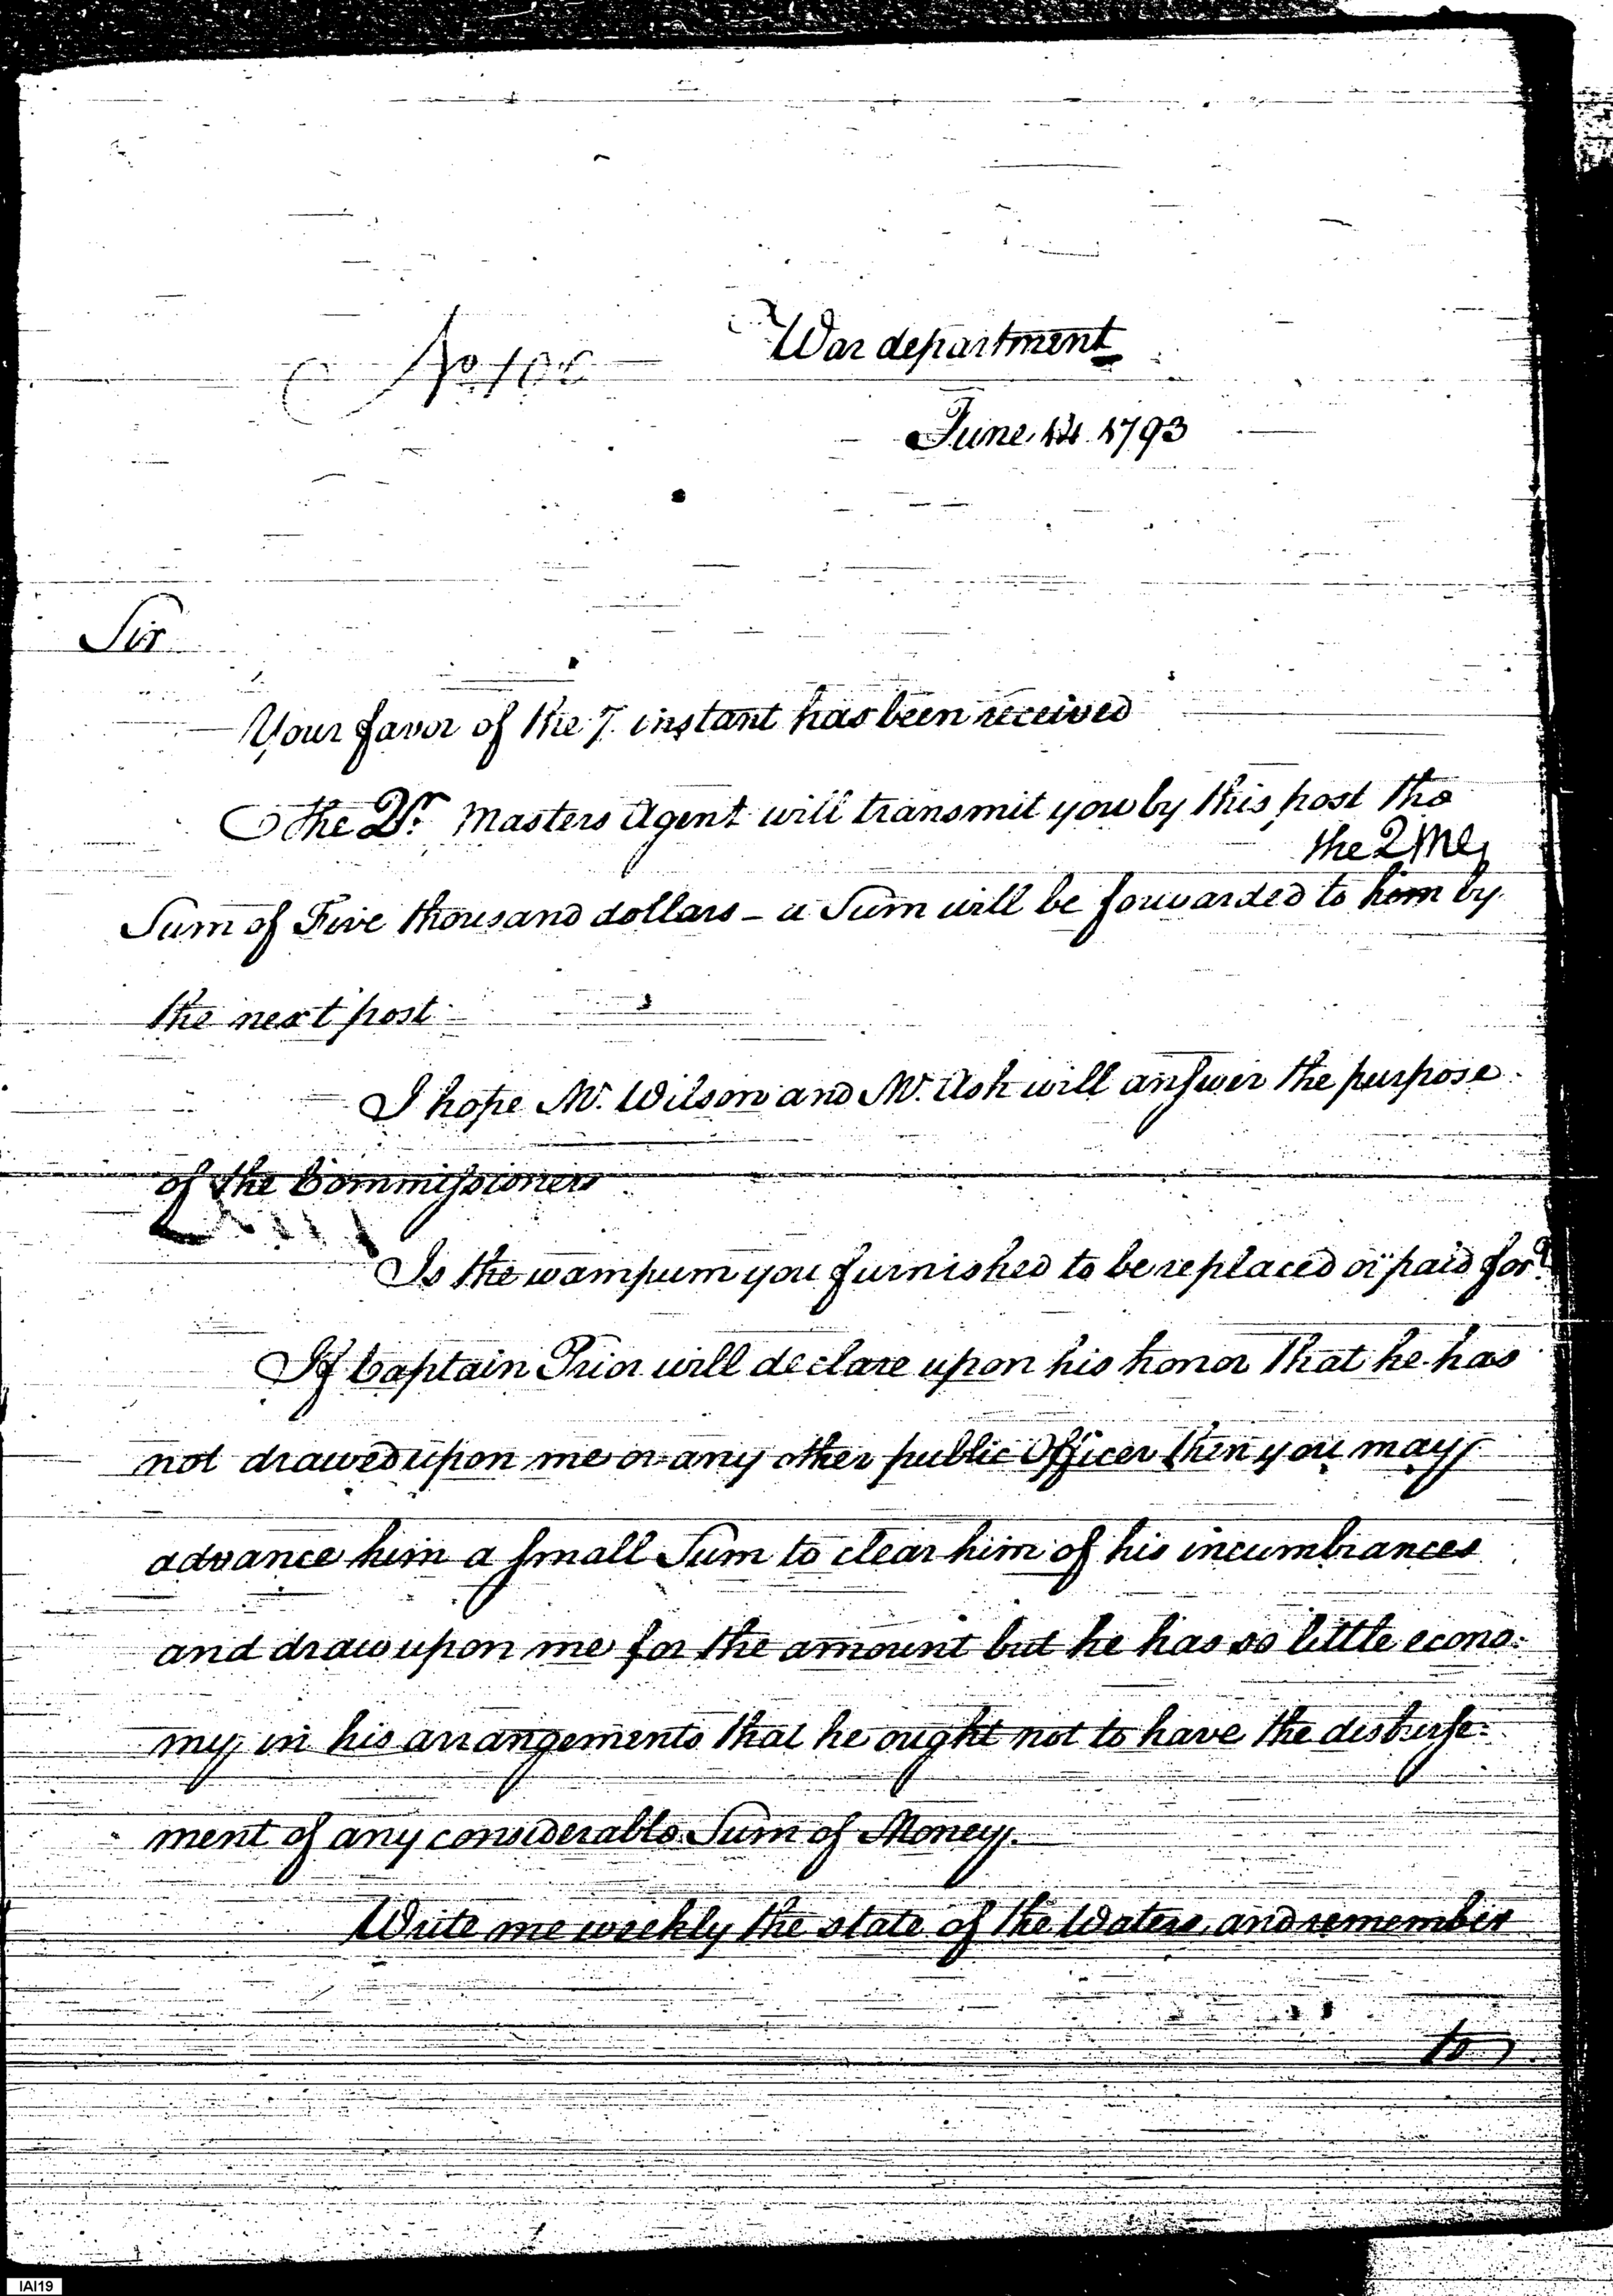 War department
No 106
June 14. 1793
Sir
Your favor of the 7. instant has been received
The Qr. Masters Agent will transmit you by this post the
the QMG
Sum of Five thousand dollars - a Sum will be forwarded to him by
the next post
I hope Mr. Wilson and Mr. Ash will answer the purpose
of the Commissioners
Is the wampum you furnished to be replaced or paid for?
If Captain Prior will declare upon his honor that he has
not drawed upon me or any other public Officer then you may
advance him a small Sum to clear him of his incumbrances
and draw upon me for the amount but he has so little econo-
my in his arrangements that he ought not to have the disburse-
ment of any considerable Sum of Money.
Write me weekly the state of the Waters, and remember
to
IAI19